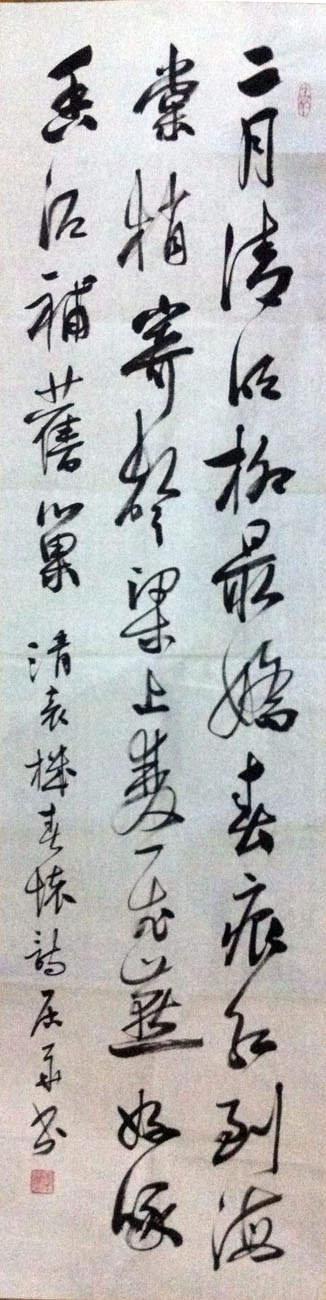 二月清明柳最嬌春痕紅到海
棠梢寄聲梁上雙飛燕好啄
香泥補舊巢 清袁機春懷詩 書